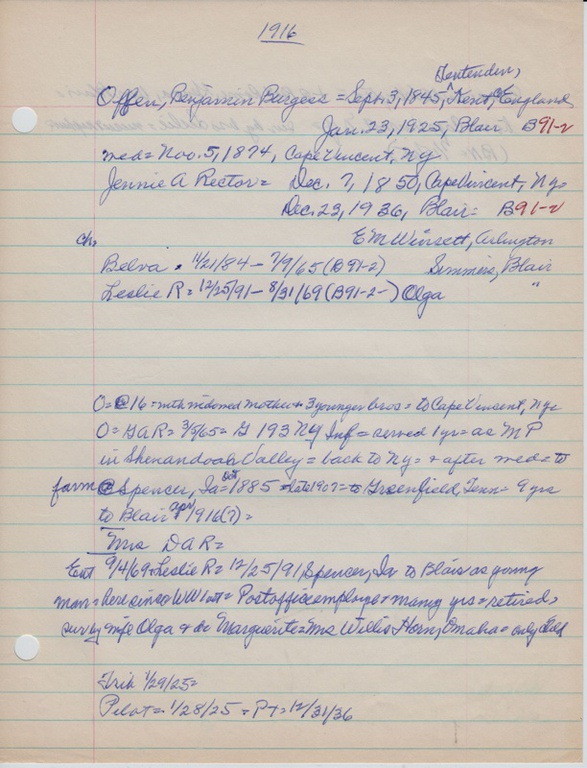 1916
Tenterden,
Offen, Benjamin Burgess = Sept. 3, 1845, Kent, England
Jan. 23, 1925, Blair B91-2
med = Nov. 5, 1874, Cape Vincent, Ny
Jennie A Rector = Dec. 7, 1850, Cape Vincent, Ny =
Dec. 29, 1936, Blair = B91-2
ch. E M Winsett, Arlington
Belva = 11/21/84 - 7/9/65 (B91-2) Simmins, Blair
Leslie R = 12/25/91 - 8/31/69 (B91-2-) Olga "
O = @ 16 = with widowed mother + 3 younger bros = to Cape Vincent, Ny =
O = GAR = 3/3/65 = G 193 NY Inf = served 1 yr = as MP
in Shenandoah Valley = back to Ny = + after med = to
farm @ Spencer, Ia = Oct 1885 = late 1907 = to Greenfield, Tenn = 9 yrs
to Blair Apr 1916 (?) =
Mrs DAR =
Ent 9/4/69 = Leslie R = 12/25/91 Spencer, Ia to Blair as young
man = here since WWI = Postoffice employe + many yrs = retired,
sur by wife Olga + da Marguerite = Mrs Willis Horn, Omaha = only
Trib 1/29/25 =
Pilot = 1/28/25 = PT = 12/31/36